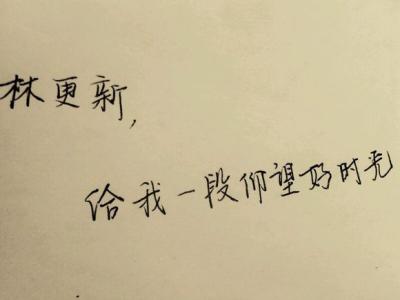 林更新,
给我一段仰望好时光